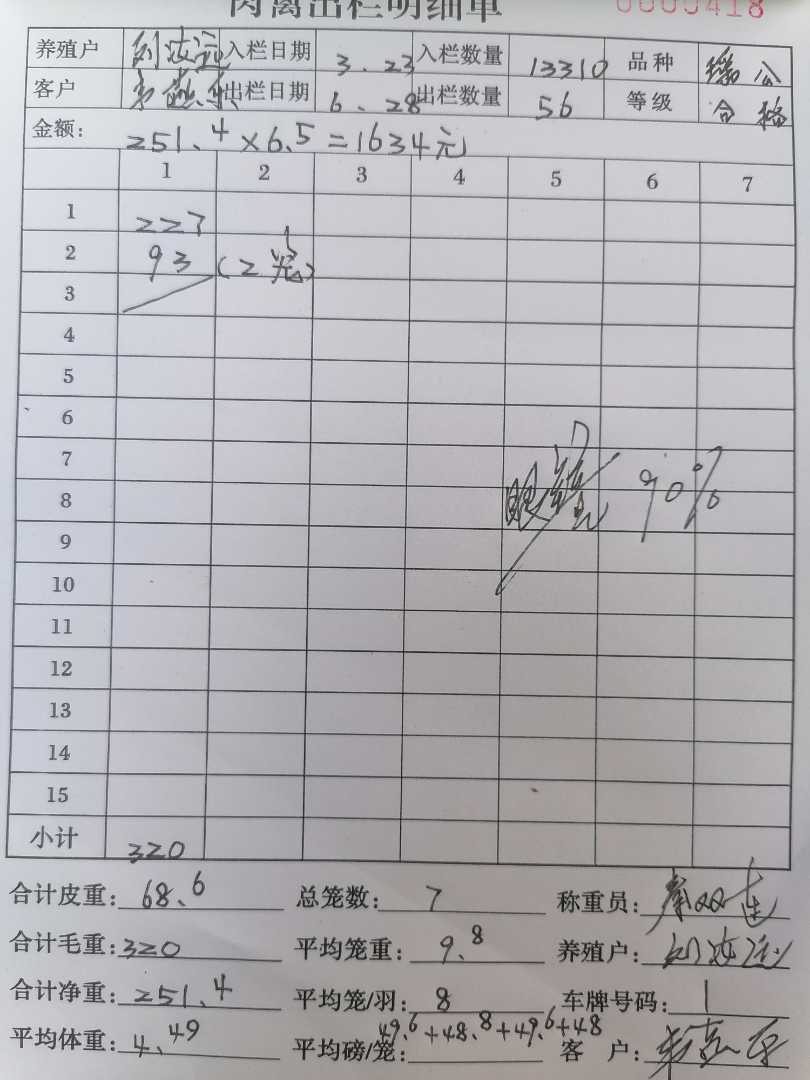 肉禽出栏明细单 0000418
养殖户 入栏日期 3.23 入栏数量 13310 品种 公
客户 出栏日期 6.28 出栏数量 56 等级 合格
金额: 251.4×6.5=1634元
1 2 3 4 5 6 7
1 227
2 93 (2笼)
3
4
5
6
7
8 眼镜 90%
9
10
11
12
13
14
15
小计 320
合计皮重: 68.6 总笼数: 7 称重员:
合计毛重: 320 平均笼重: 9.8 养殖户:
合计净重: 251.4 平均笼/羽: 8 车牌号码: 1
平均体重: 4.49 平均磅/笼: 49.6+48.8+49.6+48 客 户: